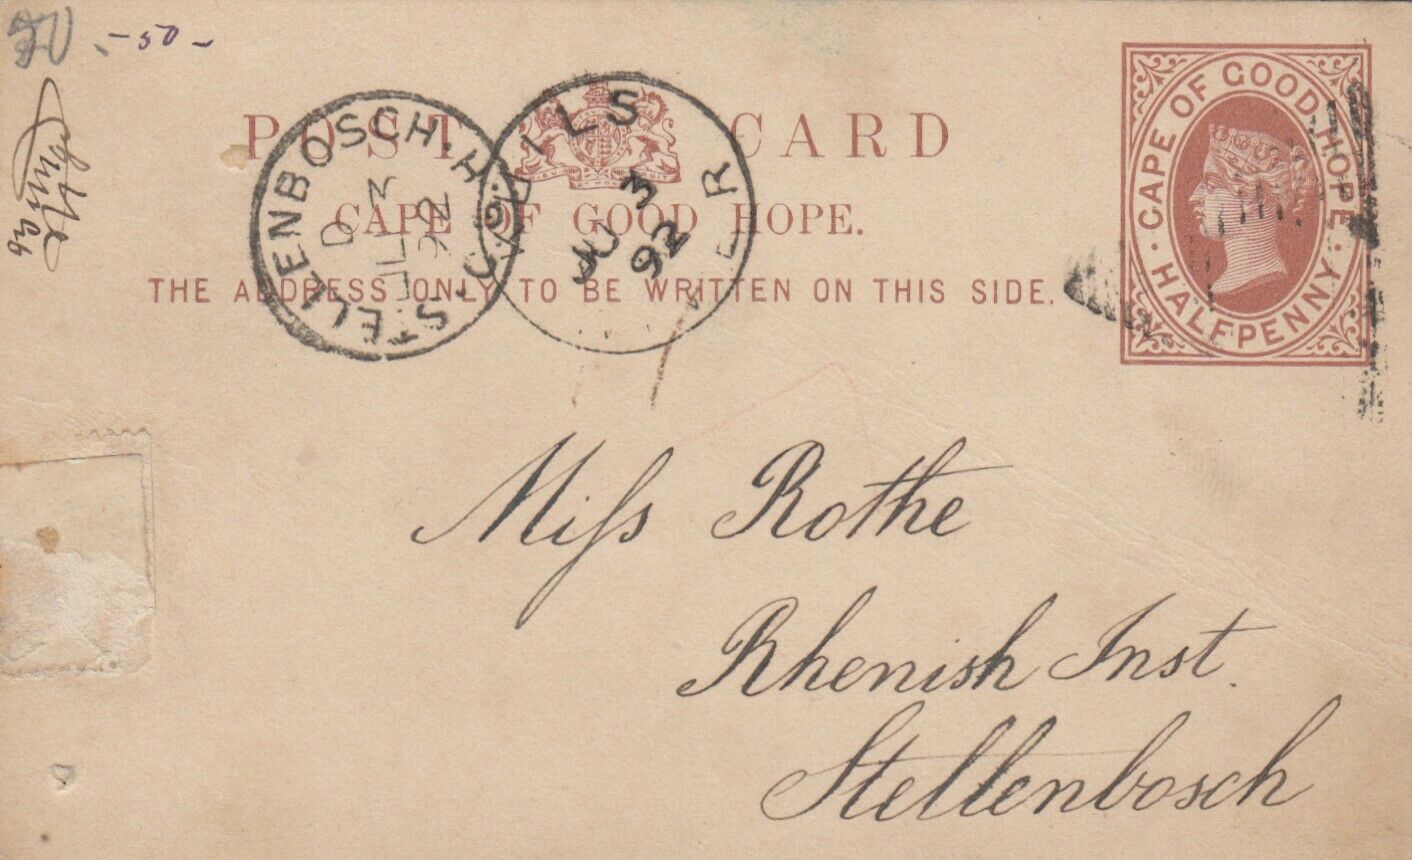 -50-
POST CARD
CAPE OF GOOD HOPE.
THE ADDRESS ONLY TO BE WRITTEN ON THIS SIDE.
CAPE OF GOOD HOPE
HALFPENNY
STELLENBOSCH. C.G.H.
D
JL 3
92
ILS
R
JU 3
92
Miss Rothe
Rhenish Inst.
Stellenbosch